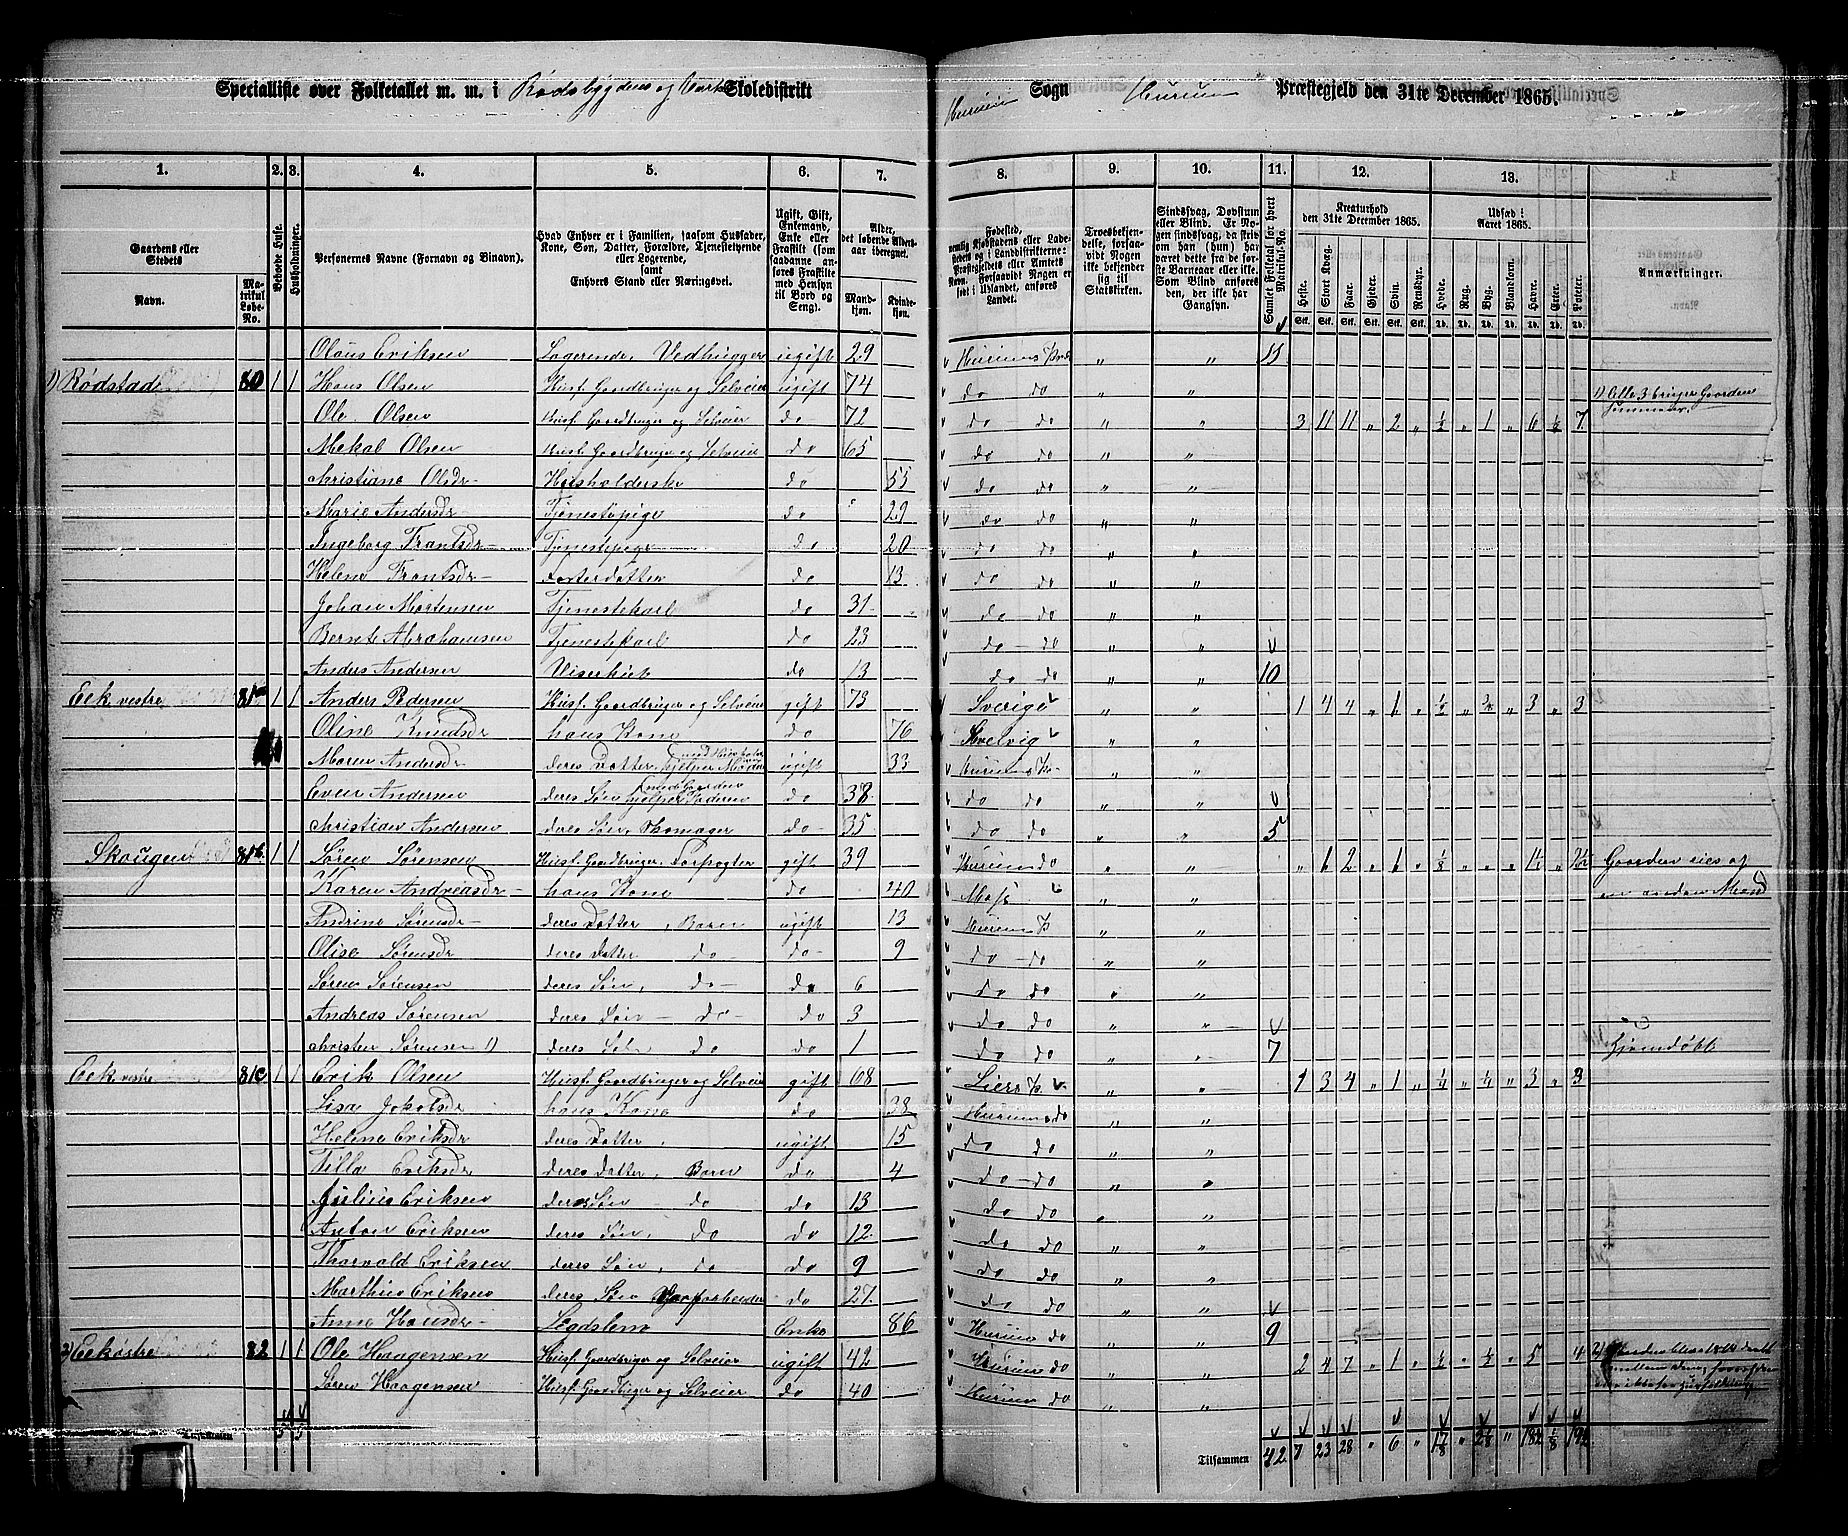 Specialliste over Folketallet m. m. i Rødsbygdens og Skoledistrikt
Hurum Sogn Hurum Præstegjeld den 31te December 1865.
1. 2. 3. 4. 5. 6. 7. 8. 9. 10. 11. 12. 13. 1.
Gaardens eller Stedets Navn. Matrikul Løbe-No. Beboede Huse. Husholdninger. Personernes Navne (Fornavn og Binavn).
Hvad Enhver er i Familien, saasom Husfader, Kone, Søn, Datter, Forældre, Tjenestetyende eller Logerende, samt Enhvers Stand eller Næringsvei.
Ugift, Gift, Enkemand, Enke eller Fraskilt (som saadanne anføres Fraskilte med Hensyn til Bord og Seng).
Alder, det løbende Aldersaar iberegnet. Mandkjøn. Kvindekjøn.
Fødested, nemlig Kjøbstadens eller Ladestedets og i Landdistrikterne: Præstegjeldets eller Amtets Navn. Forsaavidt Nogen er født i Udlandet, anføres Landet.
Troesbekjendelse, forsaavidt Nogen ikke bekjender sig til Statskirken.
Sindssvag, Døvstum eller Blind. Er Nogen sindssvag, da skrives om han (hun) har været dette fra de første Barneaar eller ikke. Som Blind anføres den, der ikke har Gangsyn.
Samlet Folketal for hvert Matrikul-No.
Kreaturhold den 31te December 1865. Heste. Stort Kvæg. Faar. Gjeder. Svin. Rensdyr.
Udsæd i Aaret 1865. Hvede. Rug. Byg. Blandkorn. Havre. Erter. Poteter.
Anmærkninger.
Olaus Eriksen Logerende, Vedhugger ugift 29 Hurums Pr. " " 11
1) Rødstad 80 1 1 Hans Olsen Husf. Gaardbruger og Selveier ugift 74 do do " " 1) Alle 3 bruger Gaarden
Ole Olsen Husf. Gaardbruger og Selveier do 72 do do " " 3 11 11 " 2 " ½ " 1 " 6 7
Mekal Olsen Husf. Gaardbruger og Selveier do 65 do do " "
Christiane Olsdr Husholderske do 55 do do " "
Marie Andersdr Tjenestepige do 29 do do " "
Ingeborg Frantsdr Tjenestepige do 20 do do " "
Helene Frantsdr Fosterdatter do 13 do do " "
Johan Mortensen Tjenestekarl do 31 do do " "
Bernt Abrahamsen Tjenestekarl do 23 do do " "
Anders Andersen do 13 do do " " 10
Eek vestre 81a 1 1 Anders Pedersen Husf. Gaardbruger og Selveier gift 73 Sverige " " 1 4 4 " 1 " " " 3 " 3
Oline Knudsdr hans Kone 76 Svelvig " "
Maren Andersdr deres Datter, hjelper Moder ugift 33 Hurums Pr. " "
Even Andersen deres Søn hjelper Faderen do 38 do do " "
Christian Andersen deres Søn, Skomager do 35 do do " " 5
Skougen 81b 1 1 Søren Sørensen Husf. Gaardbruger, Forpagter gift 39 Hurum do " " " " 1 " ⅛ " " " 1½ " Gaarden eies af
Karen Andreasdr hans Kone do 40 Moss " " en anden Mand
Andrine Sørensdr deres Datter, Barn ugift 13 Hurums P. " "
Olise Sørensdr deres Datter do do 9 do do " "
Søren Sørensen deres Søn, do do 6 do do " "
Andreas Sørensen deres Søn do do 3 do do " "
Christen Sørensen 1) deres Søn do do 1 do do " " 7 hjemdøbt
Eek vestre 81c 1 1 Erik Olsen Husf. Gaardbruger og Selveier gift 68 Liers P. " " 1 3 4 " 1 " ¼ " ¼ " 3 " 3
Lisa Jakobsdr hans Kone do 38 Hurums do " "
Helene Eriksdr deres Datter, ugift 15 do do " "
Tilla Eriksdr deres Datter, Barn do 4 do do " "
Julius Eriksen deres Søn do do 13 do do " "
Anton Eriksen deres Søn, do do 12 do do " "
Thorvald Eriksen deres Søn, do do 9 do do " "
Marthius Eriksen deres Søn do 27 do do " "
Anne Hansdr Lægdslem Enke 86 Hurum do " " 9
2) Eek østre 82 1 1 Ole Haagensen Husf. Gaardbruger og Selveier ugift 42 Hurum do " " 2 4 7 " 1 " ½ " 5 " 4
Søren Haagensen Husf. Gaardbruger og Selveier do 40 Hurum do " "
5 5 Tilsammen 42 7 23 28 " 6 " 1⅞ " " ⅛